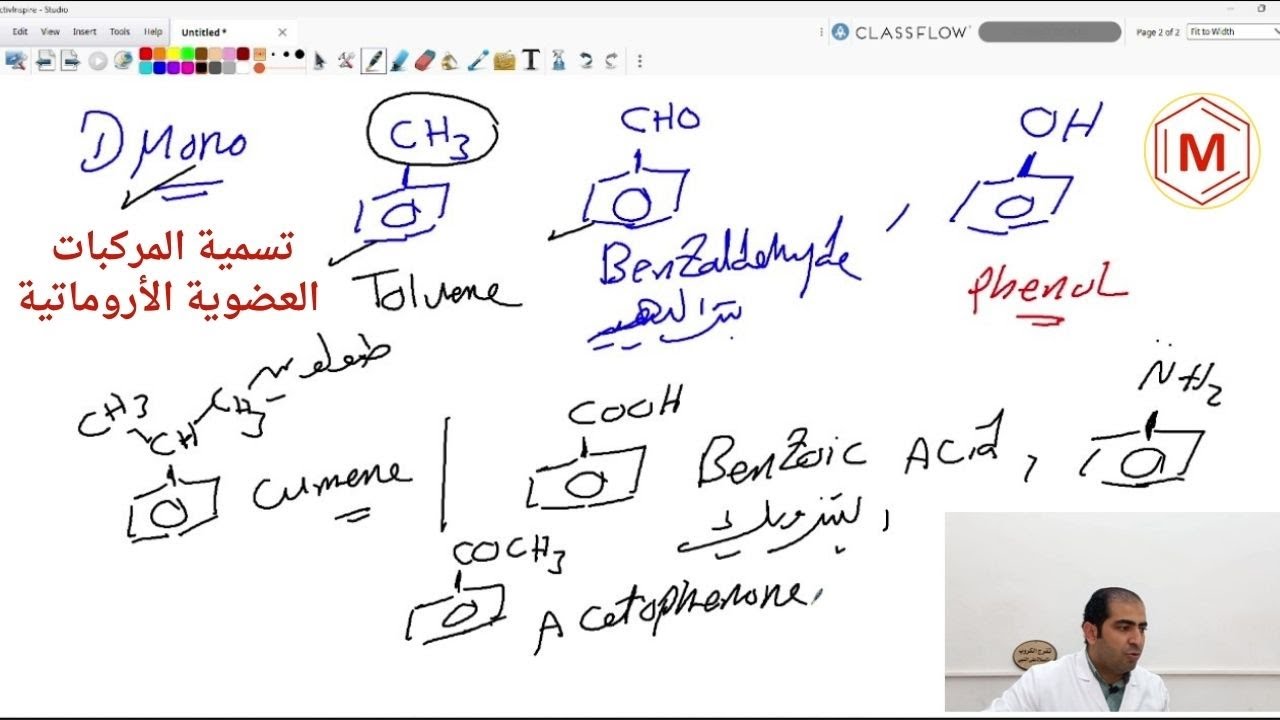 ctivInspire - Studio
Edit View Insert Tools Help Untitled *
CLASSFLOW
Page 2 of 2 Fit to Width
① Mono
CH3
CHO
OH
M
تسمية المركبات
العضوية الأروماتية
Toluene
Benzaldehyde ,
Phenol
CH3
CH
CH3
Cumene
COOH
Benzoic Acid ,
NH2
COCH3
Acetophenone